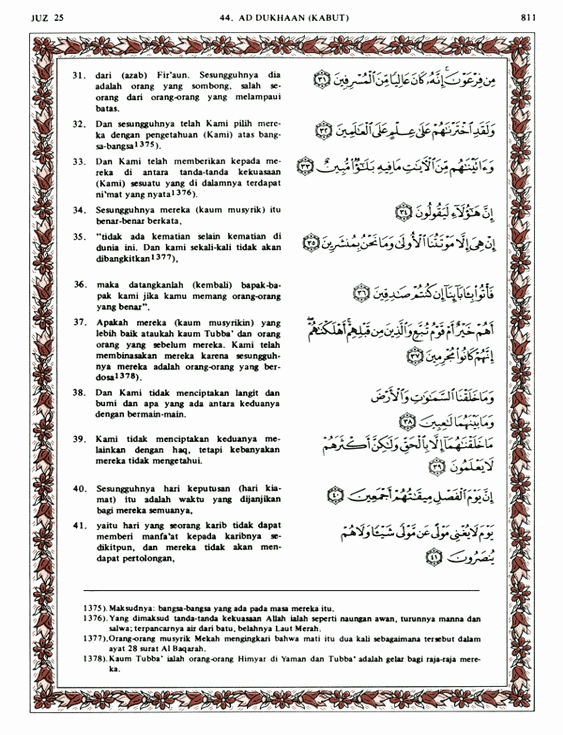 JUZ 25 44. AD DUKHAAN (KABUT) 811
31. dari (azab) Fir'aun. Sesungguhnya dia
adalah orang yang sombong, salah se-
orang dari orang-orang yang melampaui
batas.
مِن فِرْعَوْنَ ۚ إِنَّهُ كَانَ عَالِيًا مِّنَ الْمُسْرِفِينَ ٣١
32. Dan sesungguhnya telah Kami pilih mere-
ka dengan pengetahuan (Kami) atas bang-
sa-bangsa1375).
وَلَقَدِ اخْتَرْنَاهُمْ عَلَىٰ عِلْمٍ عَلَى الْعَالَمِينَ ٣٢
33. Dan Kami telah memberikan kepada me-
reka di antara tanda-tanda kekuasaan
(Kami) sesuatu yang di dalamnya terdapat
ni'mat yang nyata1376).
وَءَاتَيْنَاهُم مِّنَ الْآيَاتِ مَا فِيهِ بَلَاءٌ مُّبِينٌ ٣٣
34. Sesungguhnya mereka (kaum musyrik) itu
benar-benar berkata,
إِنَّ هَٰؤُلَاءِ لَيَقُولُونَ ٣٤
35. "tidak ada kematian selain kematian di
dunia ini. Dan kami sekali-kali tidak akan
dibangkitkan1377),
إِنْ هِيَ إِلَّا مَوْتَتُنَا الْأُولَىٰ وَمَا نَحْنُ بِمُنشَرِينَ ٣٥
36. maka datangkanlah (kembali) bapak-ba-
pak kami jika kamu memang orang-orang
yang benar".
فَأْتُوا بِآبَائِنَا إِن كُنتُمْ صَادِقِينَ ٣٦
37. Apakah mereka (kaum musyrikin) yang
lebih baik ataukah kaum Tubba' dan orang
orang yang sebelum mereka. Kami telah
membinasakan mereka karena sesungguh-
nya mereka adalah orang-orang yang ber-
dosa1378).
أَهُمْ خَيْرٌ أَمْ قَوْمُ تُبَّعٍ وَالَّذِينَ مِن قَبْلِهِمْ ۚ أَهْلَكْنَاهُمْ ۖ
إِنَّهُمْ كَانُوا مُجْرِمِينَ ٣٧
38. Dan Kami tidak menciptakan langit dan
bumi dan apa yang ada antara keduanya
dengan bermain-main.
وَمَا خَلَقْنَا السَّمَاوَاتِ وَالْأَرْضَ
وَمَا بَيْنَهُمَا لَاعِبِينَ ٣٨
39. Kami tidak menciptakan keduanya me-
lainkan dengan haq, tetapi kebanyakan
mereka tidak mengetahui.
مَا خَلَقْنَاهُمَا إِلَّا بِالْحَقِّ وَلَٰكِنَّ أَكْثَرَهُمْ
لَا يَعْلَمُونَ ٣٩
40. Sesungguhnya hari keputusan (hari kia-
mat) itu adalah waktu yang dijanjikan
bagi mereka semuanya,
إِنَّ يَوْمَ الْفَصْلِ مِيقَاتُهُمْ أَجْمَعِينَ ٤٠
41. yaitu hari yang seorang karib tidak dapat
memberi manfa'at kepada karibnya se-
dikitpun, dan mereka tidak akan men-
dapat pertolongan,
يَوْمَ لَا يُغْنِي مَوْلًى عَن مَّوْلًى شَيْئًا وَلَا هُمْ
يُنصَرُونَ ٤١
1375). Maksudnya: bangsa-bangsa yang ada pada masa mereka itu.
1376). Yang dimaksud tanda-tanda kekuasaan Allah ialah seperti naungan awan, turunnya manna dan
salwa; terpancarnya air dari batu, belahnya Laut Merah.
1377). Orang-orang musyrik Mekah mengingkari bahwa mati itu dua kali sebagaimana tersebut dalam
ayat 28 surat Al Baqarah.
1378). Kaum Tubba' ialah orang-orang Himyar di Yaman dan Tubba' adalah gelar bagi raja-raja mere-
ka.